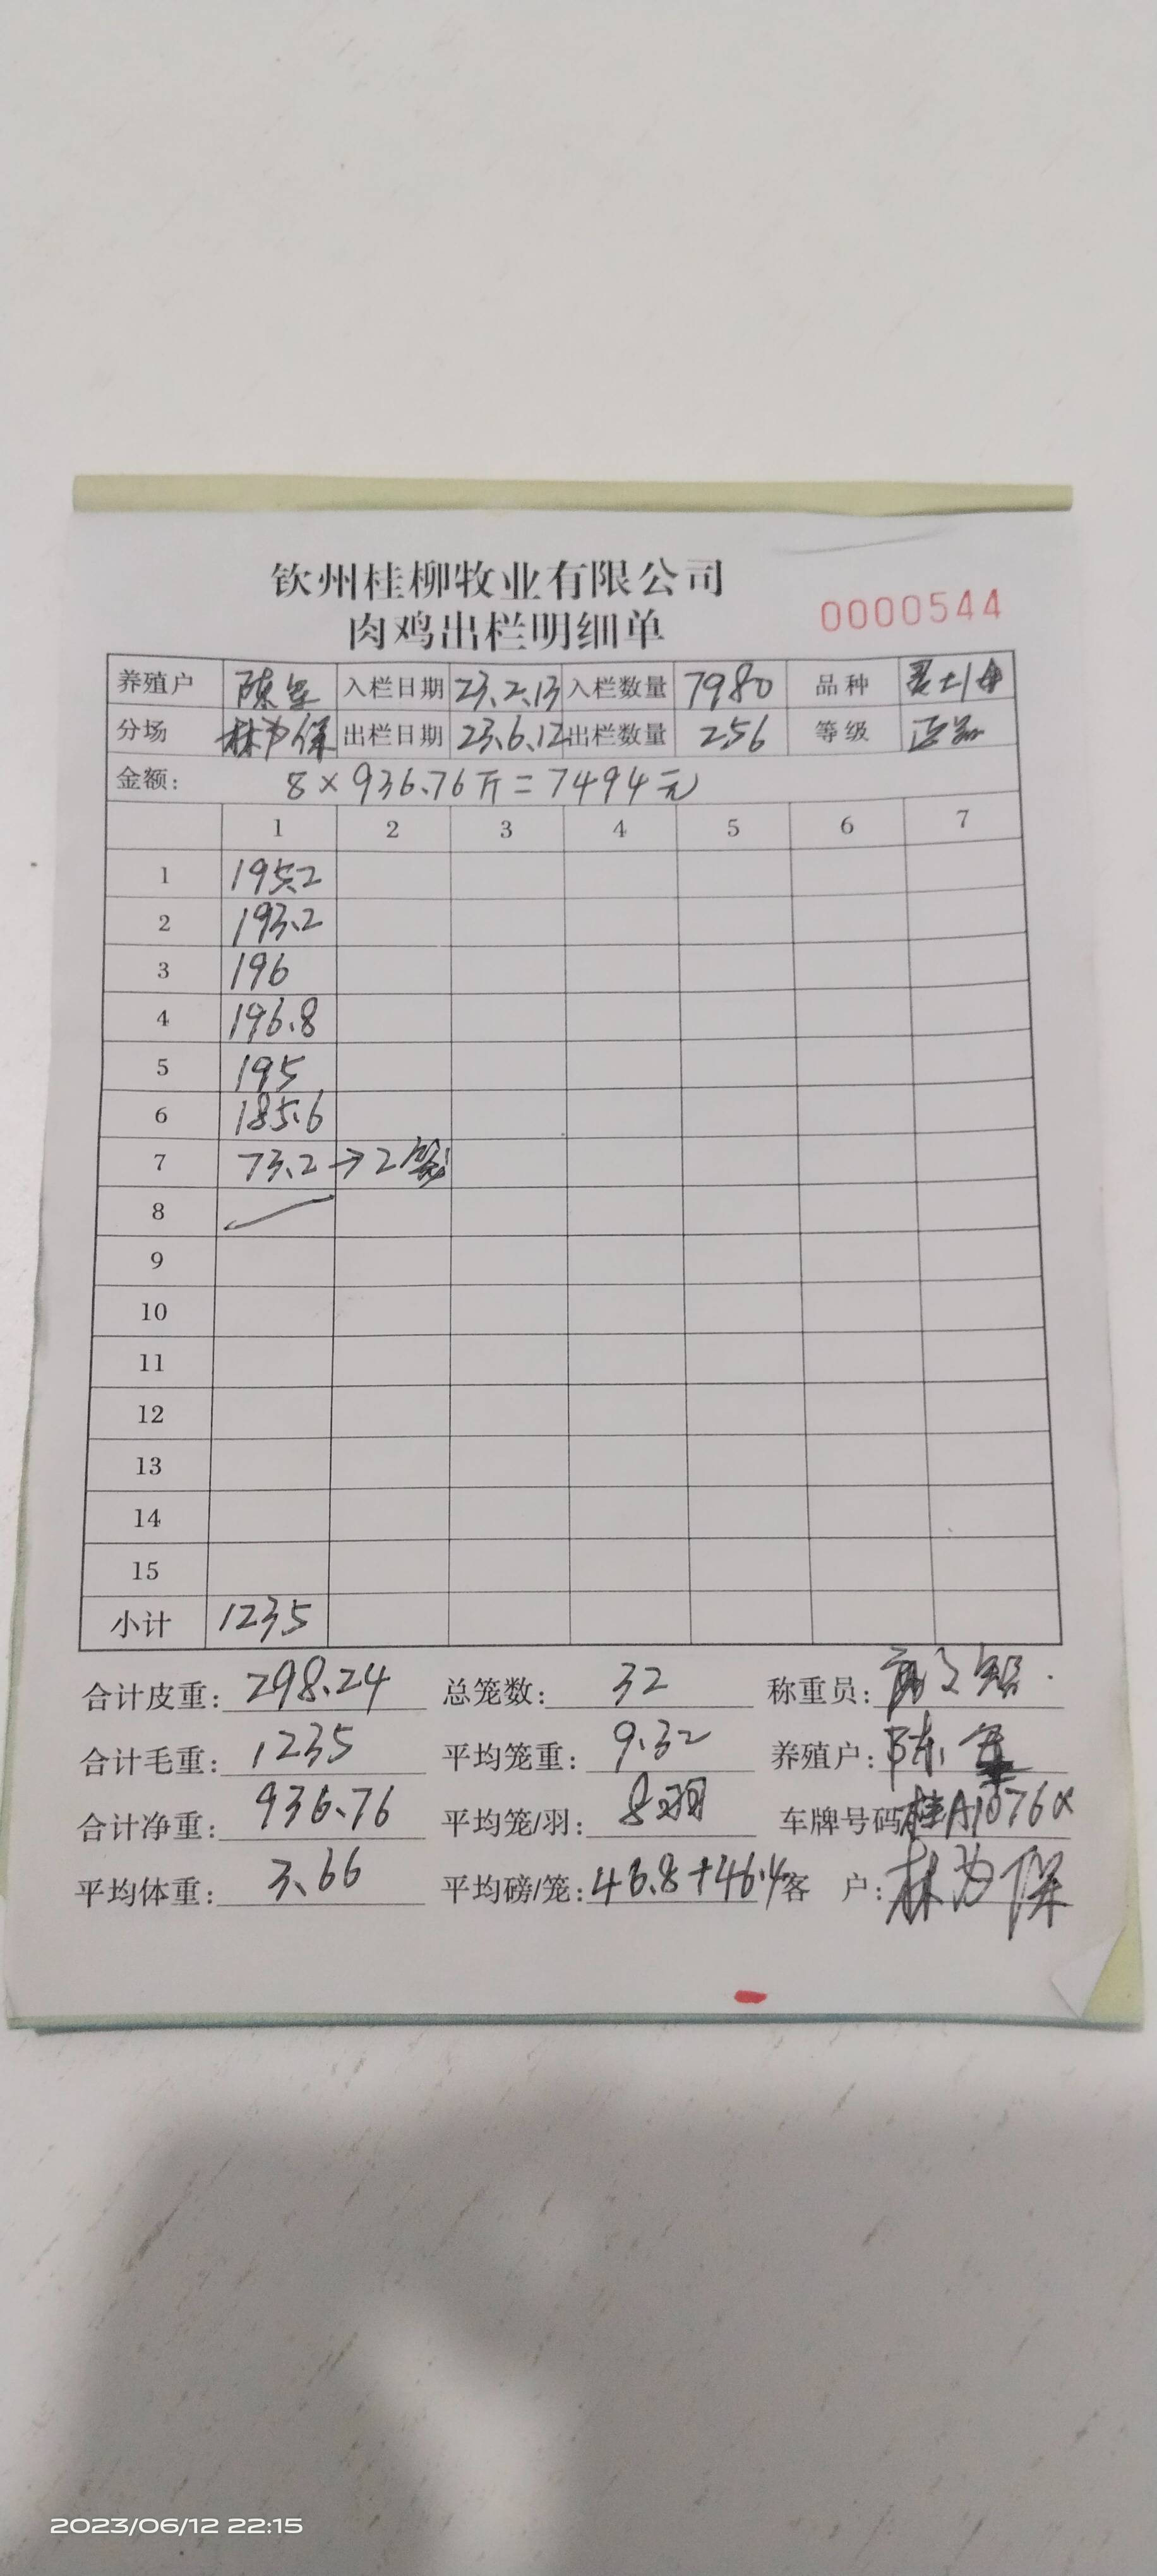 钦州桂柳牧业有限公司
肉鸡出栏明细单 0000544
养殖户 陈 入栏日期 23.2.13 入栏数量 7980 品种
分场 林为保 出栏日期 23.6.12 出栏数量 256 等级 正品
金额: 8×936.76斤=7494元
1 2 3 4 5 6 7
1 195.2
2 193.2
3 196
4 196.8
5 195
6 185.6
7 73.2→2笼
8
9
10
11
12
13
14
15
小计 1235
合计皮重: 298.24 总笼数: 32 称重员:
合计毛重: 1235 平均笼重: 9.32 养殖户: 陈
合计净重: 936.76 平均笼/羽: 8羽 车牌号码 桂A1076
平均体重: 3.66 平均磅/笼: 46.4 客 户: 林为保
2023/06/12 22:15